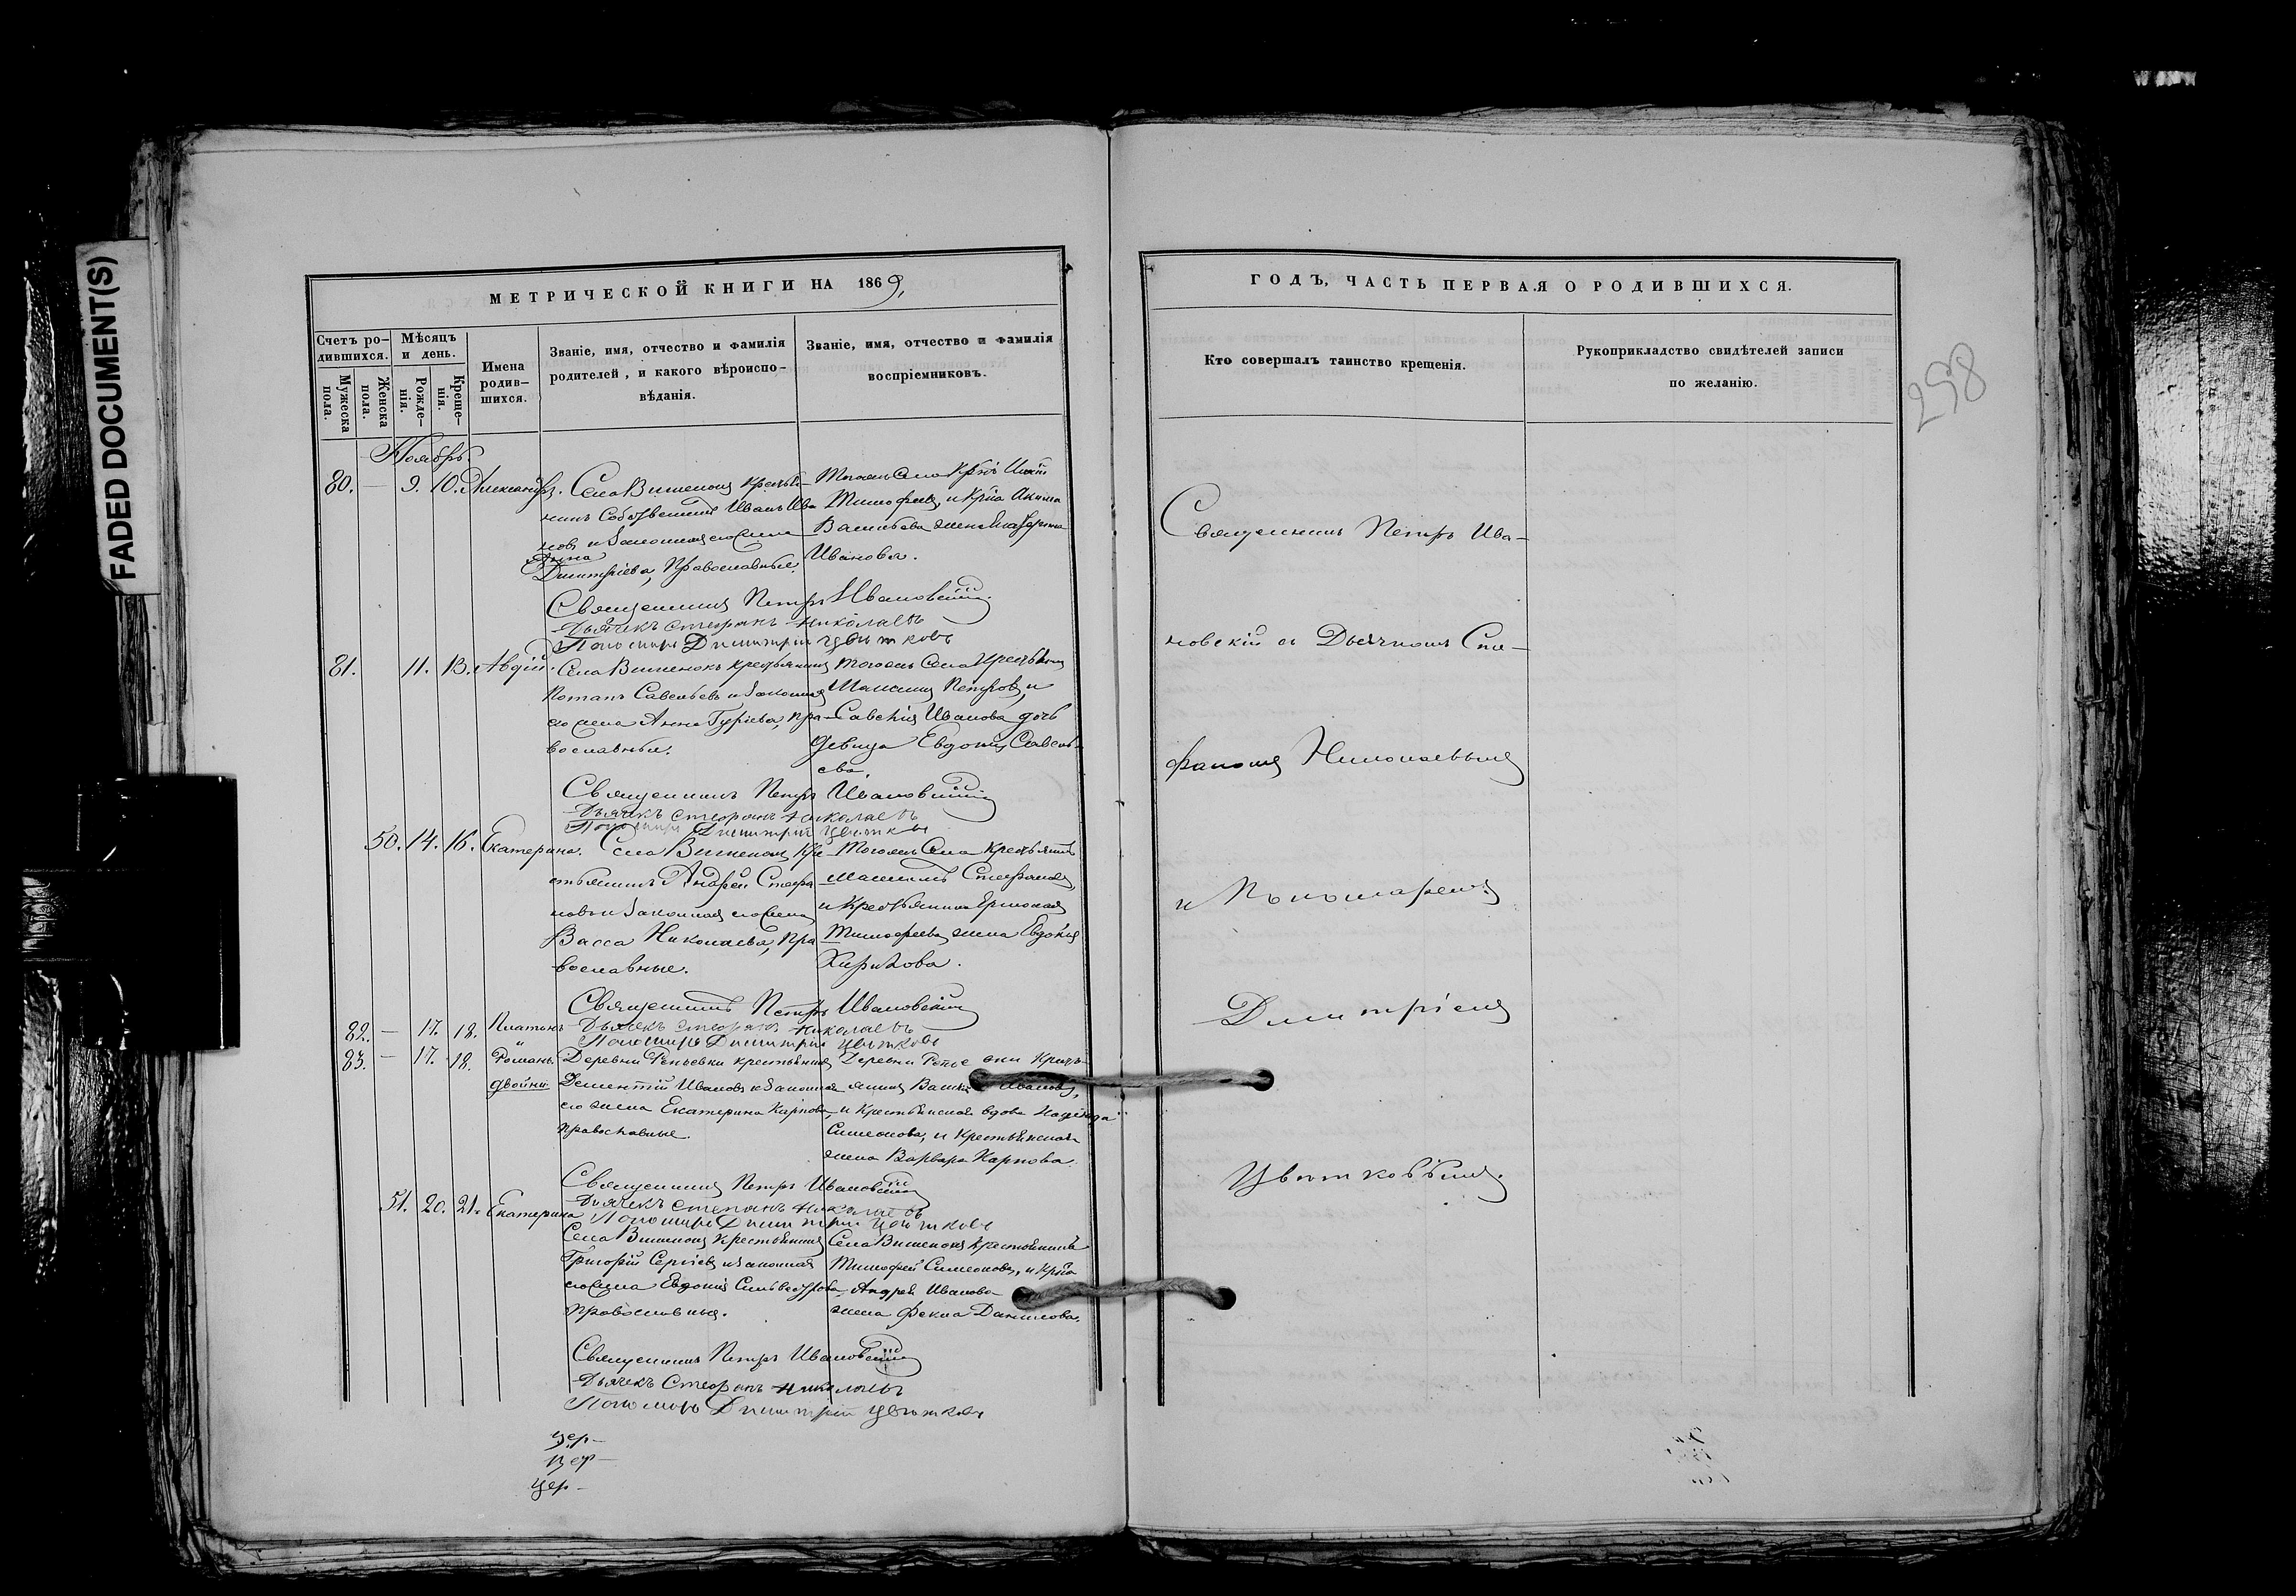 FADED DOCUMENT(S)
МЕТРИЧЕСКОЙ КНИГИ НА 1869,
Счетъ ро-
дившихся.
Мужеска
пола.
Женска
пола.
Мѣсяцъ
и день.
Рожде-
нія.
Креще-
нія.
Имена
родив-
шихся.
Званіе, имя, отчество и фамилія
родителей, и какого вѣроиспо-
вѣданія.
Званіе, имя, отчество и фамилія
воспріемниковъ.
Ноябрь
80. — 9. 10. Александръ. Села Вишенокъ крестья-
нинъ Иванъ Ива
новъ и законная его жена
Анна
Димитріева, православные.
Тогожъ села
Тимофеевъ, и
Васильева жена Екатерина
Иванова.
Священникъ Петръ Ивановскій
Дьячекъ Стефанъ Николаевъ
Пономарь Димитрій Цвѣтковъ
81. 11. 13. Авдій. Села Вишенокъ крестьянинъ
Потапъ Савельевъ и законная
его жена Анна Гуріева, пра-
вославные.
Тогожъ села
Петровъ, и
Иванова дочь
девица Евдокія Савель-
ева.
Священникъ Петръ Ивановскій
Дьячекъ Стефанъ Николаевъ
Пономарь Димитрій Цвѣтковъ
50. 14. 16. Екатерина. Села Вишенокъ кре
стьянинъ Андрей Стефа
новъ и законная его жена
Васса Николаева, пра
вославные.
Тогожъ села крестьянинъ
Стефановъ,
и крестьянина Ермолая
Тимофеева жена Евдокія
Священникъ Петръ Ивановскій
Дьячекъ Стефанъ Николаевъ
Пономарь Димитрій Цвѣтковъ
82. — 17. 18. Платонъ
и
83. — 17. 18. Романъ
двойни.
Деревни Репьевки крестьянинъ
Дементій Ивановъ и законная
его жена Екатерина Карпова
православные.
Деревни Репьевки кресть-
янинъ Ивановъ,
и крестьянская вдова Надежда
Симеонова, и крестьянская
жена Варвара Карпова.
Священникъ Петръ Ивановскій
Дьячекъ Степанъ Николаевъ
Пономарь Димитрій Цвѣтковъ
51. 20. 21. Екатерина
Села Вишенокъ крестьянинъ
Григорій Сергіевъ и законная
его жена Евдокія Сильвестрова
православныя.
Села Вишенокъ крестьянинъ
Тимофей Симеоновъ, и
Андрея Иванова
жена Фекла Данилова.
Священникъ Петръ Ивановскій
Дьячекъ Стефанъ Николаевъ
Пономарь Димитрій Цвѣтковъ
цер-
цер-
цер-
ГОДЪ, ЧАСТЬ ПЕРВАЯ О РОДИВШИХСЯ.
Кто совершалъ таинство крещенія.
Рукоприкладство свидѣтелей записи
по желанію.
258
Священникъ Петръ Ива-
новскій съ Дьячкомъ Сте-
фаномъ Николаевымъ
и Пономаремъ
Димитріемъ
Цвѣтковымъ.